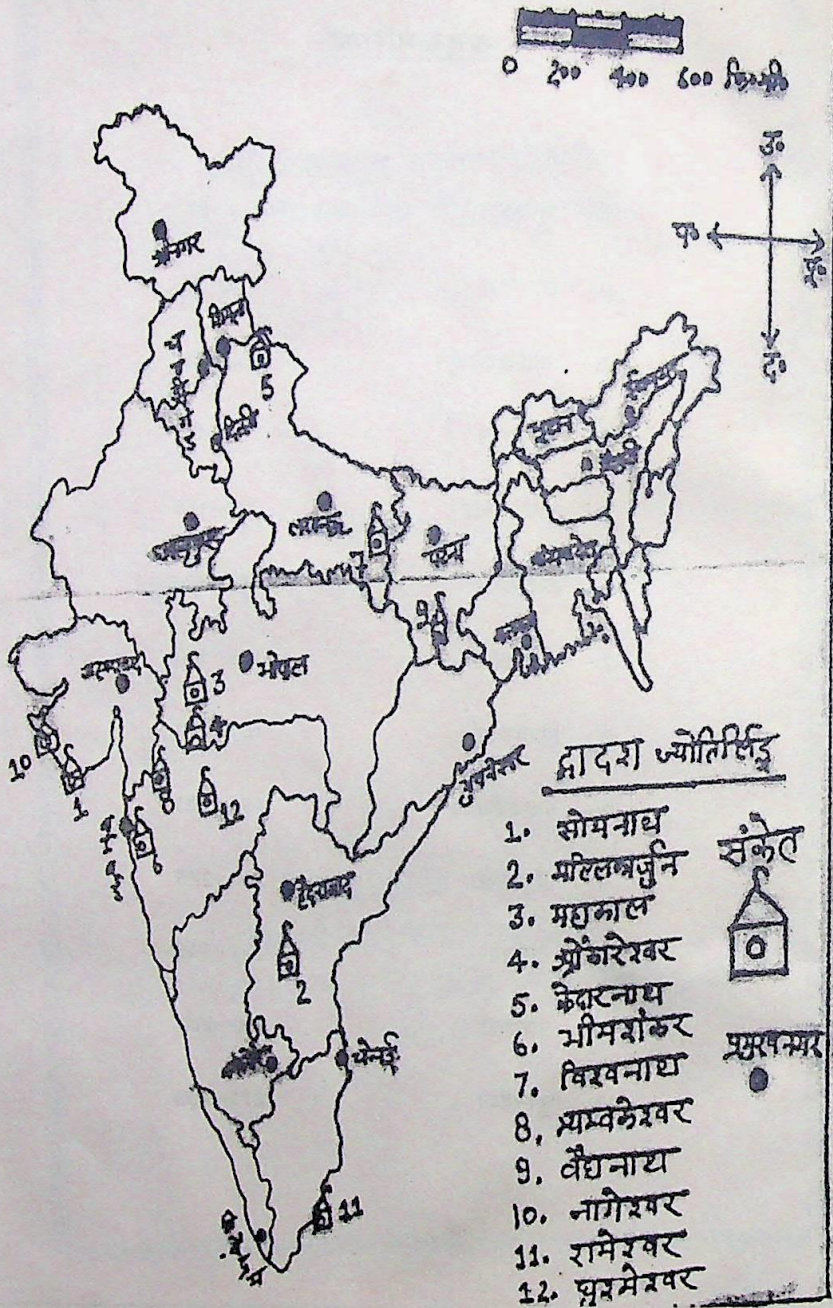 0 200 400 600 कि.मी.
उ०
प०
पू०
द०
श्रीनगर
शिमला
चण्डीगढ़
5
दिल्ली
भूटान
ईटानगर
जयपुर
लखनऊ
7
पटना
बांग्लादेश
9
3
भोपाल
4
10
1
8
12
भुवनेश्वर
6
हैदराबाद
2
चेन्नई
11
द्वादश ज्योतिर्लिङ्ग
1. सोमनाथ
2. मल्लिकार्जुन
3. महाकाल
4. ओंकारेश्वर
5. केदारनाथ
6. भीमशंकर
7. विश्वनाथ
8. त्र्यम्वकेश्वर
9. वैद्यनाथ
10. नागेश्वर
11. रामेश्वर
12. घुश्मेश्वर
संकेत
प्रमुख नगर